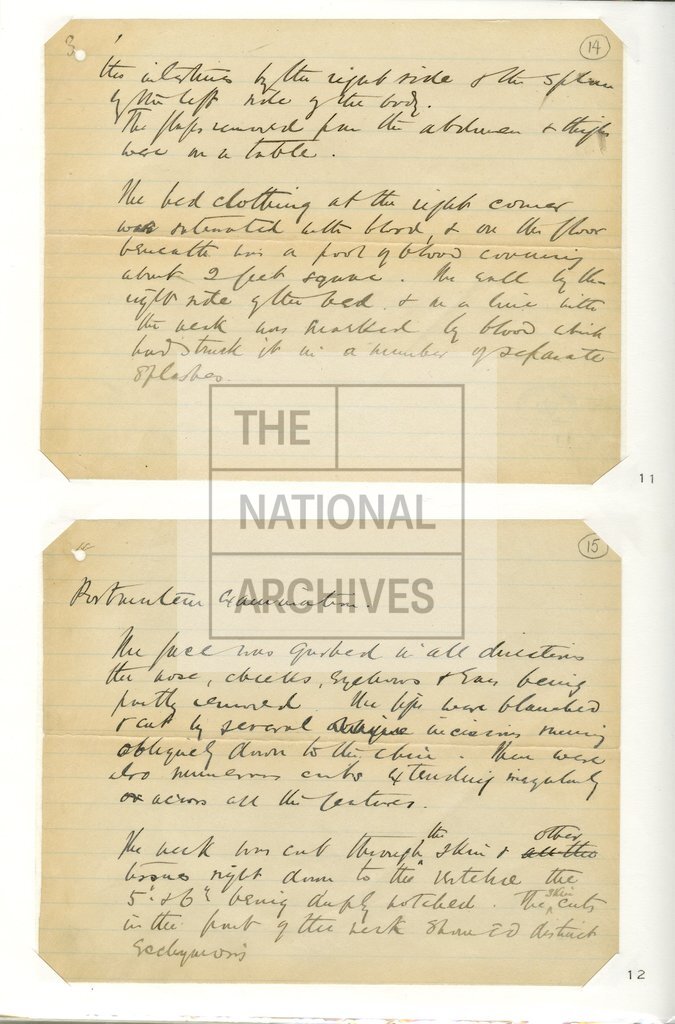 3
14
the intestines by the right side & the spleen
by the left side of the body.
The flaps removed from the abdomen & thighs
were on a table.
The bed clothing at the right corner
was saturated with blood, & on the floor
beneath was a pool of blood covering
about 2 feet square. The wall by the
right side of the bed & in a line with
the neck was marked by blood which
had struck it in a number of separate
splashes.
11
THE
NATIONAL
ARCHIVES
15
Postmortem Examination.
The face was gashed in all directions
the nose, cheeks, eyebrows & ears being
partly removed. The lips were blanched
& cut by several incisions running
obliquely down to the chin. There were
also numerous cuts extending irregularly
across all the features.
The neck was cut through the skin & other
tissues right down to the vertebrae the
5th & 6th being deeply notched. The skin cuts
in the front of the neck showed distinct
ecchymosis
12